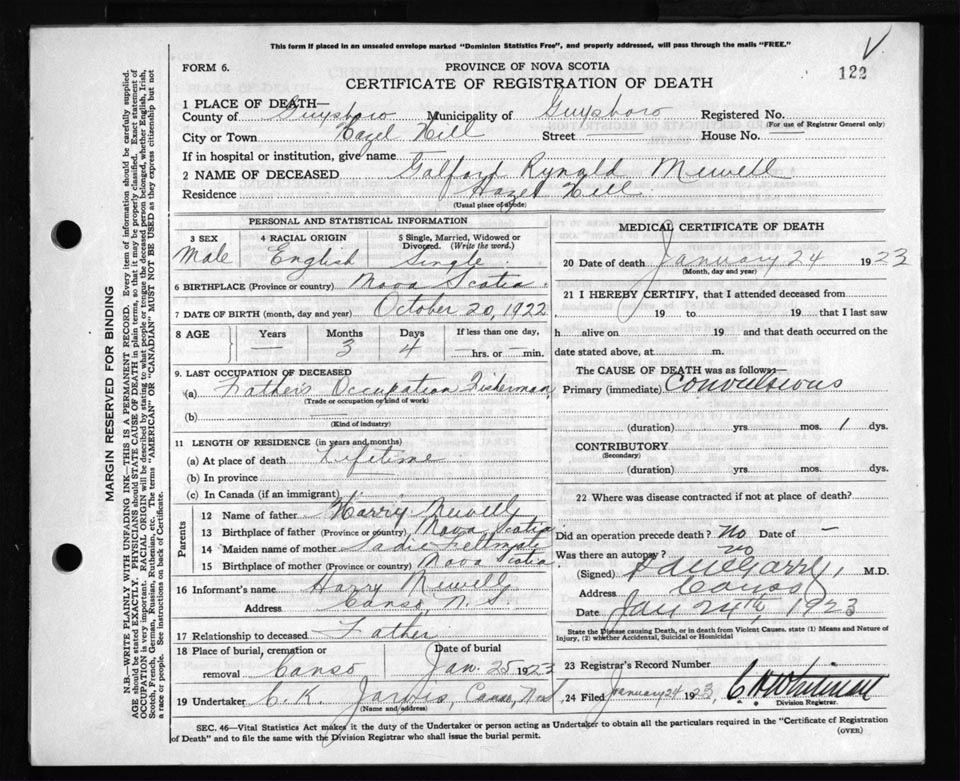 This form if placed in an unsealed envelope marked "Dominion Statistics Free", and properly addressed, will pass through the mails "FREE."
V
122
FORM 6.
PROVINCE OF NOVA SCOTIA
CERTIFICATE OF REGISTRATION OF DEATH
1 PLACE OF DEATH—
County of Guysboro Municipality of Guysboro Registered No.
(For use of Registrar General only)
City or Town Hazel Hill Street House No.
If in hospital or institution, give name
2 NAME OF DECEASED Galford Rynold Newell
Residence Hazel Hill
(Usual place of abode)
PERSONAL AND STATISTICAL INFORMATION
3 SEX Male
4 RACIAL ORIGIN English
5 Single, Married, Widowed or Divorced. (Write the word.) Single
6 BIRTHPLACE (Province or country) Nova Scotia.
7 DATE OF BIRTH (month, day and year) October 20, 1922
8 AGE Years — Months 3 Days 4 If less than one day, — hrs. or — min.
9. LAST OCCUPATION OF DECEASED
(a) Father's Occupation Fisherman
(Trade or occupation or kind of work)
(b)
(Kind of industry)
11 LENGTH OF RESIDENCE (in years and months)
(a) At place of death Lifetime
(b) In province
(c) In Canada (if an immigrant)
Parents
12 Name of father Harry Newell
13 Birthplace of father (Province or country) Nova Scotia
14 Maiden name of mother Sadie
15 Birthplace of mother (Province or country) Nova Scotia.
16 Informant's name Harry Newell
Address Canso, N. S.
17 Relationship to deceased Father
18 Place of burial, cremation or removal Canso
Date of burial Jan. 25 1923
19 Undertaker C. K. Jarvis, Canso,
(Name and address)
MEDICAL CERTIFICATE OF DEATH
20 Date of death January 24 1923
(Month, day and year)
21 I HEREBY CERTIFY, that I attended deceased from
19 to 19 that I last saw
h alive on 19 and that death occurred on
date stated above, at m.
The CAUSE OF DEATH was as follows—
Primary (immediate) Convulsions
(duration) yrs. mos. 1 dys.
CONTRIBUTORY
(Secondary)
(duration) yrs. mos. dys.
22 Where was disease contracted if not at place of death?
Did an operation precede death? No Date of —
Was there an autopsy? no
(Signed) M.D.
Address Canso
Date Jan 24th, 1923
State the Disease causing Death, or in death from Violent Causes, state (1) Means and Nature of Injury, (2) whether Accidental, Suicidal or Homicidal
23 Registrar's Record Number
24 Filed January 24 1923, C H Whitman
Division Registrar.
SEC. 46—Vital Statistics Act makes it the duty of the Undertaker or person acting as Undertaker to obtain all the particulars required in the "Certificate of Registration
of Death" and to file the same with the Division Registrar who shall issue the burial permit.
(OVER)
MARGIN RESERVED FOR BINDING
N.B.—WRITE PLAINLY WITH UNFADING INK—THIS IS A PERMANENT RECORD. Every item of information should be carefully supplied.
AGE should be stated EXACTLY. PHYSICIANS should STATE CAUSE OF DEATH in plain terms, so that it may be properly classified. Exact statement of
OCCUPATION is very important. RACIAL ORIGIN will be described by stating to what people or tongue the deceased person belonged, whether English, Irish,
Scotch, French, German, Russian, Ruthenian, etc. The terms "AMERICAN" OR "CANADIAN" MUST NOT BE USED as they express citizenship but not
a race or people. See instructions on back of Certificate.